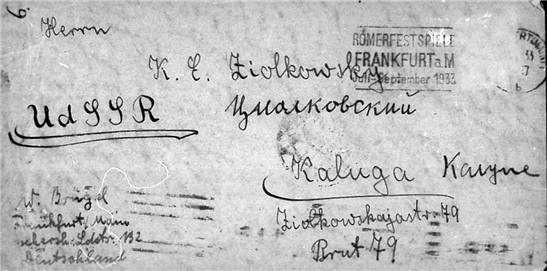 6.
Herrn
RÖMERFESTSPIELE
FRANKFURT a.M
Juli-September 1933
K. E. Ziolkowsky
UdSSR
Циалковский
Kaluga Калуге
Ziolkowskajastr. 79
Brut 79
Frankfurt/Main
132
Deutschland